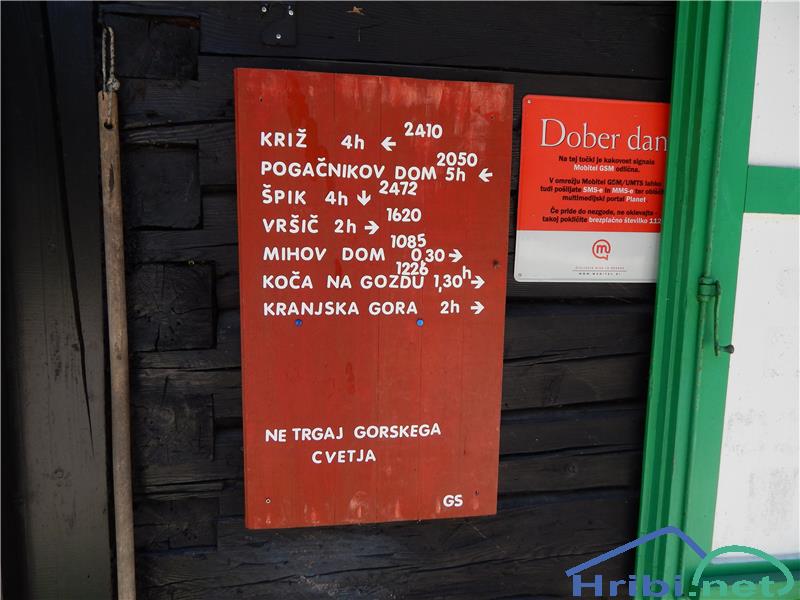 KRIŽ 4h ← 2410
POGAČNIKOV DOM 5h ← 2050
ŠPIK 4h ↓ 2472
VRŠIČ 2h → 1620
MIHOV DOM 0,30 → 1085
KOČA NA GOZDU 1,30h → 1226
KRANJSKA GORA 2h →
NE TRGAJ GORSKEGA
CVETJA
GS
Dober dan
Na tej točki je kakovost signala
Mobitel GSM odlična.
V omrežju Mobitel GSM/UMTS lahko
tudi pošiljate SMS-e in MMS-e ter
multimedijski portal Planet
Če pride do nezgode, ne oklevajte
takoj pokličite brezplačno številko 112
Hribi.net